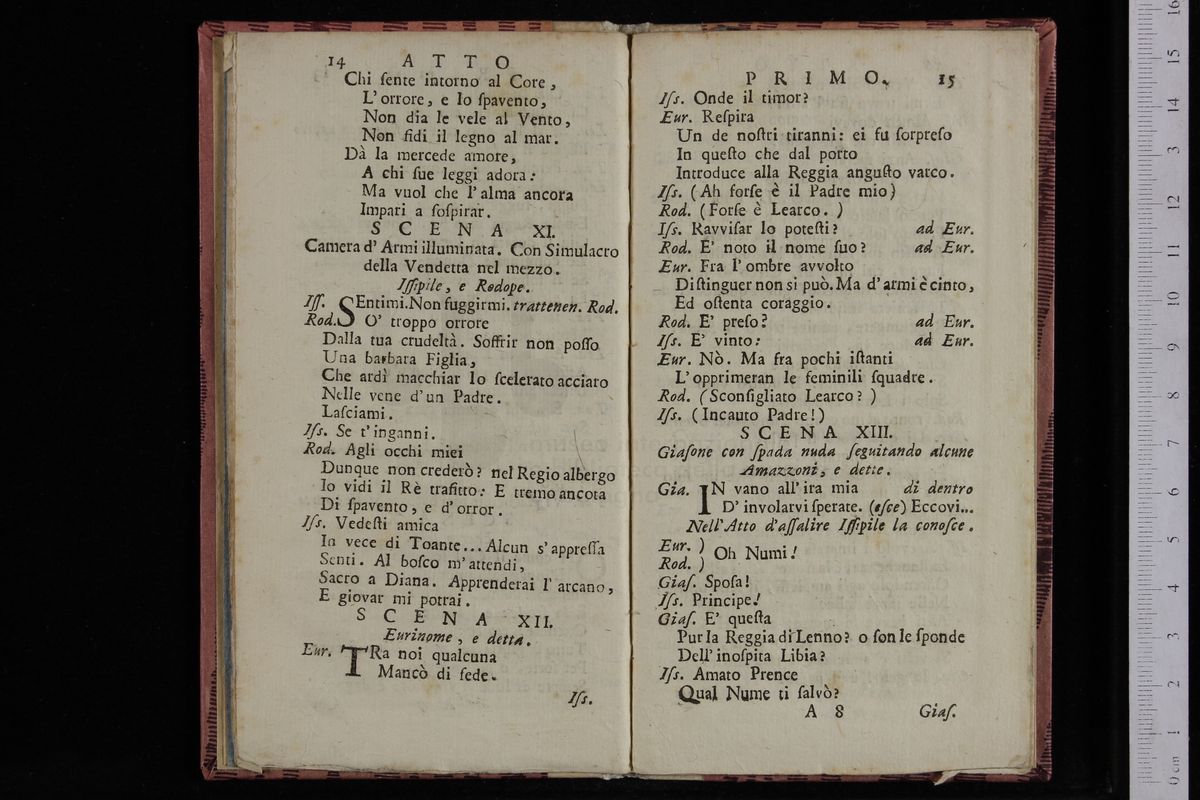 14 A T T O
Chi ſente intorno al Core,
L'orrore, e lo ſpavento,
Non dia le vele al Vento,
Non fidi il legno al mar.
Dà la mercede amore,
A chi ſue leggi adora:
Ma vuol che l'alma ancora
Impari a ſoſpirar.
S C E N A XI.
Camera d'Armi illuminata. Con Simulacro
della Vendetta nel mezzo.
Iſſipile, e Rodope.
Iſſ. SEntimi. Non fuggirmi. trattenen. Rod.
Rod. O' troppo orrore
Dalla tua crudeltà. Soffrir non poſſo
Una barbara Figlia,
Che ardì macchiar lo ſcelerato acciaro
Nelle vene d'un Padre.
Laſciami.
Iſs. Se t'inganni.
Rod. Agli occhi miei
Dunque non crederò? nel Regio albergo
Io vidi il Rè trafitto: E tremo ancota
Di ſpavento, e d'orror.
Iſs. Vedeſti amica
In vece di Toante... Alcun s'appreſſa
Senti. Al boſco m'attendi,
Sacro a Diana. Apprenderai l'arcano,
E giovar mi potrai.
S C E N A XII.
Eurinome, e detta.
Eur. TRa noi qualcuna
Mancò di fede.
Iſs.
P R I M O. 15
Iſs. Onde il timor?
Eur. Reſpira
Un de noſtri tiranni: ei fu ſorpreſo
In queſto che dal porto
Introduce alla Reggia anguſto varco.
Iſs. (Ah forſe è il Padre mio)
Rod. (Forſe è Learco. )
Iſs. Ravviſar lo poteſti? ad Eur.
Rod. E' noto il nome ſuo? ad Eur.
Eur. Fra l'ombre avvolto
Diſtinguer non si può. Ma d'armi è cinto,
Ed oſtenta coraggio.
Rod. E' preſo? ad Eur.
Iſs. E' vinto: ad Eur.
Eur. Nò. Ma fra pochi iſtanti
L'opprimeran le feminili ſquadre.
Rod. (Sconſigliato Learco? )
Iſs. (Incauto Padre!)
S C E N A XIII.
Giaſone con ſpada nuda ſeguitando alcune
Amazzoni, e dette.
Gia. IN vano all'ira mia di dentro
D'involarvi ſperate. (eſce) Eccovi...
Nell'Atto d'aſſalire Iſſipile la conoſce.
Eur. )
Rod. ) Oh Numi!
Giaſ. Spoſa!
Iſs. Principe!
Giaſ. E' queſta
Pur la Reggia di Lenno? o ſon le ſponde
Dell'inoſpita Libia?
Iſs. Amato Prence
Qual Nume ti ſalvò?
A 8 Giaſ.
0 cm 1 2 3 4 5 6 7 8 9 10 11 12 13 14 15 16